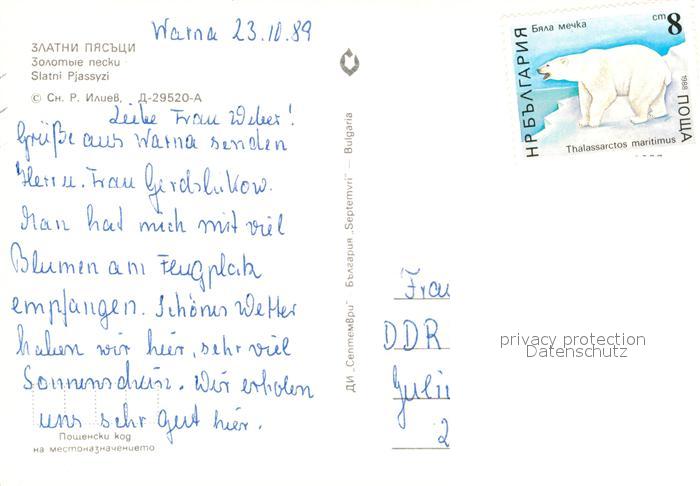 Warna 23.10.89
ЗЛАТНИ ПЯСЪЦИ
Золотые пески
Slatni Pjassyzi
© Сн. Р. Илиев, Д-29520-А
Liebe Frau Weber!
Grüße aus Warna senden
Herr u. Frau
Man hat mich mit viel
Blumen am Flugplatz
empfangen. Schönes Wetter
haben wir hier, sehr viel
Sonnenschein. Wir erholen
uns sehr gut hier.
Пощенски код
на местоназначението
ДИ „Септември" България „Septemvri" — Bulgaria
НР БЪЛГАРИЯ
Бяла мечка
cm 8
1988 ПОЩА
Thalassarctos maritimus
Frau
DDR
2
privacy protection
Datenschutz